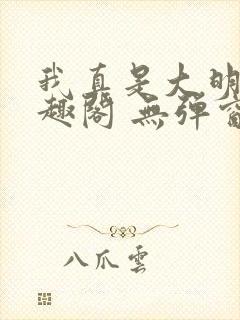 我真是大明
趣閣 無彈窗
八爪雲